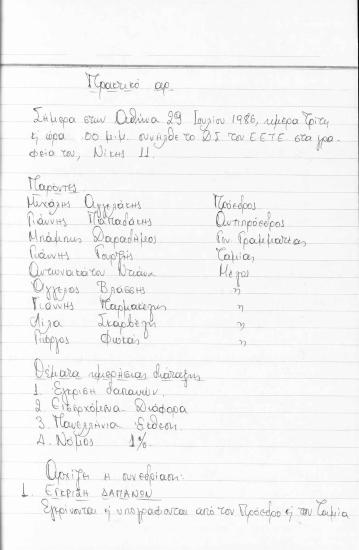 Πρακτικό αρ.
Σήμερα στην Αθήνα 29 Ιουλίου 1986, ημέρα Τρίτη
κ ώρα .00 μ.μ. συνήλθε το ΔΣ του ΕΕΤΕ στα γρα-
φεία του, Νίκης 11:
Παρόντες
Μιχάλης Αγγελάκης Πρόεδρος
Γιάννης Παπαδάκης Αντιπρόεδρος
Μπάμπης Δαραδήμος Γεν Γραμματέας
Γιάννης Ταμίας
Ντιάνα Μέλος
Άγγελος Βλάσσης "
Γιάννης "
Λίλα "
Γιώργος Φωκάς "
Θέματα ημερήσιας διάταξης
1. Έγκριση δαπανών,
2. Εισερχόμενα Διάφορα
3. Πανελλήνια Έκθεση.
4. Νόμος 1%
Αρχίζει η συνεδρίαση:
1. ΕΓΚΡΙΣΗ ΔΑΠΑΝΩΝ
Εγκρίνονται κ υπογράφονται από τον Πρόεδρο κ τον Ταμία